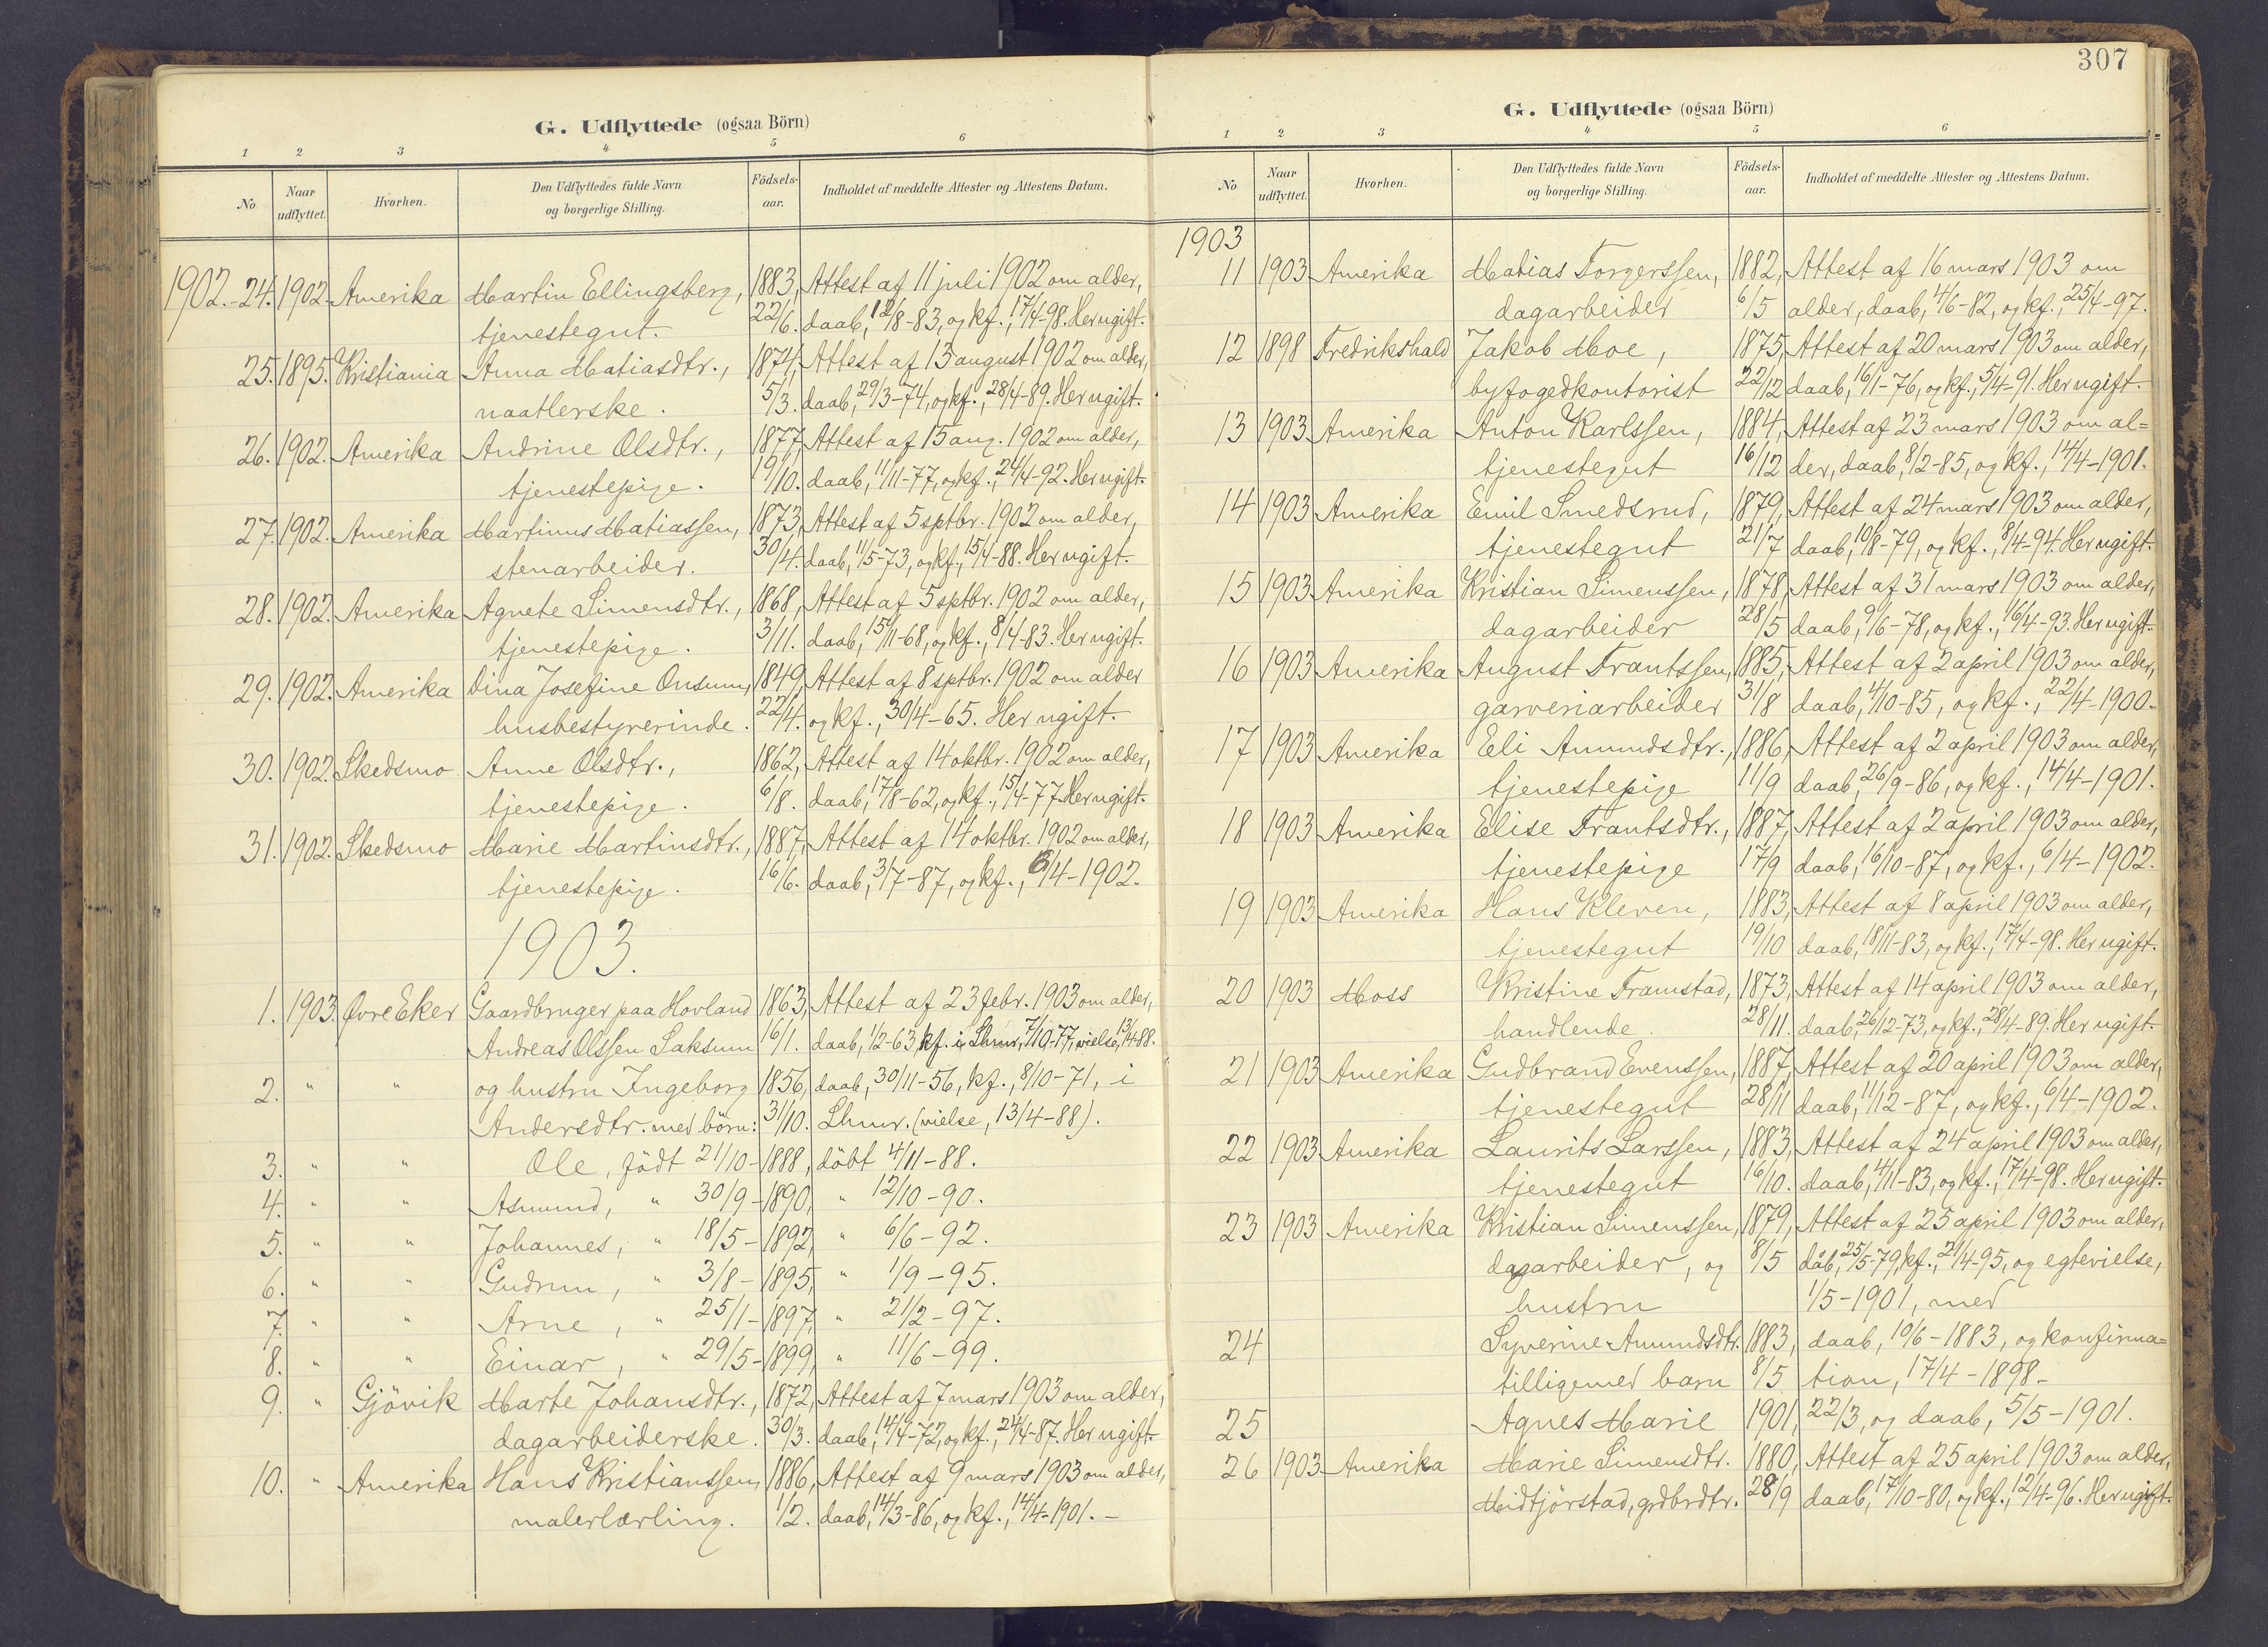 G. Udflyttede (ogsaa Börn)
1 2 3 4 5 6
No
Naar udflyttet.
Hvorhen.
Den Udflyttedes fulde Navn og borgerlige Stilling.
Födsels-aar.
Indholdet af meddelte Attester og Attestens Datum.
1902.-24. 1902. Amerika Martin Ellingsberg, 1883, Attest af 11 juli 1902 om alder,
tjenestegut. 22/6. daab, 12/8-83, og kf., 17/4-98. Her ugift.
25. 1895. Kristiania Anna Matiasdtr., 1874, Attest af 13 august 1902 om alder,
naatlerske. 5/3. daab, 29/3-74, og kf., 28/4-89. Her ugift.
26. 1902. Amerika Andrine Olsdtr., 1877, Attest af 15 aug. 1902 om alder,
tjenestepige. 19/10. daab, 11/11-77, og kf., 24/4-92. Her ugift.
27. 1902. Amerika Martinus Matiassen, 1873, Attest af 5 sptbr. 1902 om alder,
stenarbeider. 30/4. daab, 11/5-73, og kf., 15/4-88. Her ugift.
28. 1902. Amerika Agnete Simensdtr., 1868, Attest af 5 sptbr. 1902 om alder,
tjenestepige. 3/11. daab, 15/11-68, og kf., 8/4-83. Her ugift.
29. 1902. Amerika Dina Josefine Onsum, 1849, Attest af 8 sptbr. 1902 om alder
husbestyrerinde. 22/4. og kf., 30/4-65. Her ugift.
30. 1902. Skedsmo Anne Olsdtr., 1862, Attest af 14 oktbr. 1902 om alder,
tjenestepige. 6/8. daab, 17/8-62, og kf., 15/4-77. Her ugift.
31. 1902. Skedsmo Marie Martinsdtr., 1887, Attest af 14 oktbr. 1902 om alder,
tjenestepige. 16/6. daab, 3/7-87, og kf., 6/4-1902.
1903.
1. 1903. Øvre Eker Gaardbruger paa Hovland 1863, Attest af 23 febr. 1903 om alder,
Andreas Olssen Saksum 16/1. daab, 1/2-63, kf. i Lhmr, 7/10-77, vielse, 13/4 88.
2. " " og hustru Ingeborg 1856, daab, 30/11-56, kf., 8/10-71, i
Andersdtr. med börn: 31/10. Lhmr. (vielse, 13/4-88).
3. " " Ole, födt 21/10-1888, döbt 4/11-88.
4. " " Asmund, " 30/9-1890, " 12/10-90.
5. " " Johannes, " 18/5-1892, " 6/6-92.
6. " " Gudrun, " 3/8-1895, " 1/9-95.
7. " " Arne, " 25/1-1897, " 21/2-97.
8. " " Einar, " 29/5-1899, " 11/6-99.
9. " Gjövik Marte Johansdtr., 1872, Attest af 7 mars 1903 om alder,
dagarbeiderske. 30/3. daab, 14/4-72, og kf., 24/4-87. Her ugift.
10. " Amerika Hans Kristianssen, 1886, Attest af 9 mars 1903 om alder,
malerlærling. 1/2. daab, 14/3-86, og kf., 14/4-1901.-
307
G. Udflyttede (ogsaa Börn)
1 2 3 4 5 6
No
Naar udflyttet.
Hvorhen.
Den Udflyttedes fulde Navn og borgerlige Stilling.
Födsels-aar.
Indholdet af meddelte Attester og Attestens Datum.
1903
11 1903 Amerika Matias Torgerssen, 1882, Attest af 16 mars 1903 om
dagarbeider 6/5 alder, daab, 4/6-82, og kf., 25/4-97.
12 1898 Fredrikshald Jakob Moe, 1875, Attest af 20 mars 1903 om alder,
byfogedkontorist 22/12 daab, 16/1-76, og kf., 5/4-91. Her ugift.
13 1903 Amerika Anton Karlssen, 1884, Attest af 23 mars 1903 om al=
tjenestegut 16/12 der, daab, 8/2-85, og kf., 14/4-1901.
14 1903 Amerika Emil Smedsrud, 1879, Attest af 24 mars 1903 om alder,
tjenestegut 21/7 daab, 10/8-79, og kf., 8/4-94. Her ugift.
15 1903 Amerika Kristian Simenssen, 1878, Attest af 31 mars 1903 om alder,
dagarbeider 28/5 daab, 9/6-78, og kf., 16/4-93. Her ugift.
16 1903 Amerika August Frantssen, 1885, Attest af 2 april 1903 om alder,
garveriarbeider 31/8 daab, 4/10-85, og kf., 22/4-1900.
17 1903 Amerika Eli Amundsdtr., 1886, Attest af 2 april 1903 om alder,
tjenestepige 11/9 daab, 26/9-86, og kf., 14/4-1901.
18 1903 Amerika Elise Frantsdtr., 1887, Attest af 2 april 1903 om alder,
tjenestepige 17/9 daab, 16/10-87, og kf., 6/4-1902.
19 1903 Amerika Hans Kleven, 1883, Attest af 8 april 1903 om alder,
tjenestegut 19/10 daab, 18/11-83, og kf., 17/4-98. Her ugift.
20 1903 Moss Kristine Framstad, 1873, Attest af 14 april 1903 om alder,
handlende. 28/11. daab, 26/12-73, og kf., 28/4-89. Her ugift.
21 1903 Amerika Gudbrand Evenssen, 1887, Attest af 20 april 1903 om alder,
tjenestegut 28/11 daab, 11/12-87, og kf., 6/4-1902.
22 1903 Amerika Laurits Larssen, 1883, Attest af 24 april 1903 om alder,
tjenestegut 16/10. daab, 4/11-83, og kf., 17/4-98. Her ugift.
23 1903 Amerika Kristian Simenssen, 1879, Attest af 25 april 1903 om alder,
dagarbeider, og 8/5 dåb, 25/5-79, kf., 21/4-95, og egtevielse,
hustru 1/5-1901, med
24 Syverine Amundsdtr. 1883, daab, 10/6-1883, og konfirma=
tilligemed barn 8/5 tion, 17/4-1898-
25 Agnes Marie 1901, 22/3, og daab, 5/5-1901.
26 1903 Amerika Marie Simensdtr. 1880, Attest af 25 april 1903 om alder,
Midtjörstad, grdbrdtr. 28/9 daab, 17/10-80, og kf., 12/4-96. Her ugift.